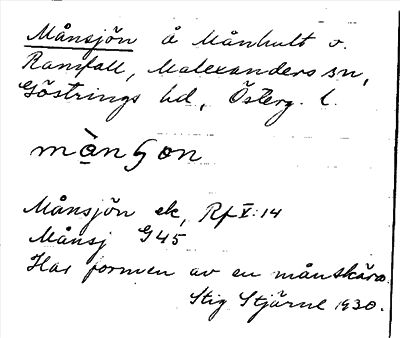 Månsjön å Månhult o.
Ramfall, Malexanders sn,
Göstrings hd, Österg. l.
mån ᶘon
Månsjön ek, Rf V:14
Månsj G45
Har formen av en månskära.
Stig Stjärne 1930.